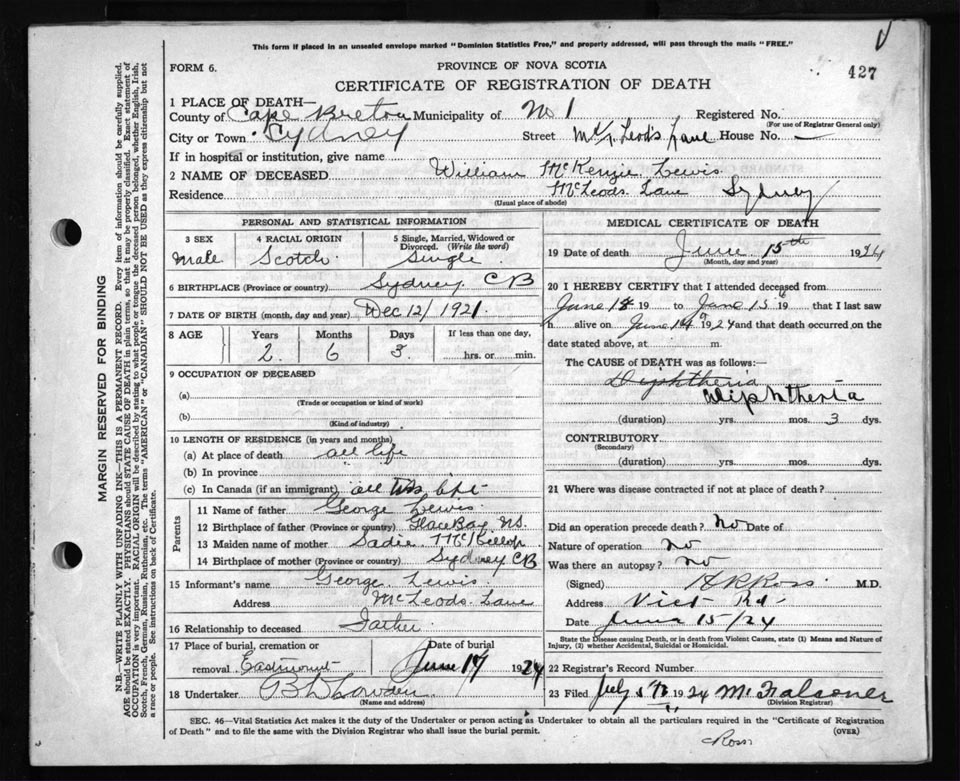 This form if placed in an unsealed envelope marked "Dominion Statistics Free," and properly addressed, will pass through the mails "FREE."
FORM 6.
PROVINCE OF NOVA SCOTIA
427
CERTIFICATE OF REGISTRATION OF DEATH
1 PLACE OF DEATH—
County of Cape Breton Municipality of No 1 Registered No.
(For use of Registrar General only)
City or Town Sydney Street McLeods Lane House No. —
If in hospital or institution, give name
2 NAME OF DECEASED William McKenzie Lewis
Residence McLeods Lane Sydney
(Usual place of abode)
PERSONAL AND STATISTICAL INFORMATION
3 SEX Male
4 RACIAL ORIGIN Scotch
5 Single, Married, Widowed or Divorced. (Write the word) Single
6 BIRTHPLACE (Province or country) Sydney CB
7 DATE OF BIRTH (month, day and year) Dec 12/1921
8 AGE Years Months Days If less than one day,
2 6 3 hrs. or min.
9 OCCUPATION OF DECEASED
(a)
(Trade or occupation or kind of work)
(b)
(Kind of industry)
10 LENGTH OF RESIDENCE (in years and months)
(a) At place of death all life
(b) In province
(c) In Canada (if an immigrant) all his life
Parents
11 Name of father George Lewis
12 Birthplace of father (Province or country) Glace Bay N.S.
13 Maiden name of mother Sadie McKillop
14 Birthplace of mother (Province or country) Sydney CB
15 Informant's name George Lewis
Address McLeods Lane
16 Relationship to deceased Father
17 Place of burial, cremation or removal Eastmount
Date of burial June 17 1924
18 Undertaker
(Name and address)
MEDICAL CERTIFICATE OF DEATH
19 Date of death June 15th 1924
(Month, day and year)
20 I HEREBY CERTIFY that I attended deceased from
June 19 to June 15 19 that I last saw
h alive on June 14 1924 and that death occurred on
date stated above, at m.
The CAUSE of DEATH was as follows:—
Diphtheria
Diphtheria
(duration) yrs. mos. 3 dys.
CONTRIBUTORY
(Secondary)
(duration) yrs. mos. dys.
21 Where was disease contracted if not at place of death?
Did an operation precede death? No Date of
Nature of operation no
Was there an autopsy? no
(Signed) H R Ross M.D.
Address Vict Rd
Date June 15/24
State the Disease causing Death, or in death from Violent Causes, state (1) Means and Nature of Injury, (2) whether Accidental, Suicidal or Homicidal.
22 Registrar's Record Number
23 Filed July 1924
(Division Registrar)
SEC. 46—Vital Statistics Act makes it the duty of the Undertaker or person acting as Undertaker to obtain all the particulars required in the "Certificate of Registration
of Death" and to file the same with the Division Registrar who shall issue the burial permit. (OVER)
Ross
MARGIN RESERVED FOR BINDING
N.B.—WRITE PLAINLY WITH UNFADING INK—THIS IS A PERMANENT RECORD. Every item of information should be carefully supplied.
AGE should be stated EXACTLY. PHYSICIANS should STATE CAUSE OF DEATH in plain terms, so that it may be properly classified. Exact statement of
OCCUPATION is very important. RACIAL ORIGIN will be described by stating to what people or tongue the deceased person belonged, whether English, Irish,
Scotch, French, German, Russian, Ruthenian, etc. The terms "AMERICAN" or "CANADIAN" SHOULD NOT BE USED as they express citizenship but not
a race or people. See instructions on back of Certificate.